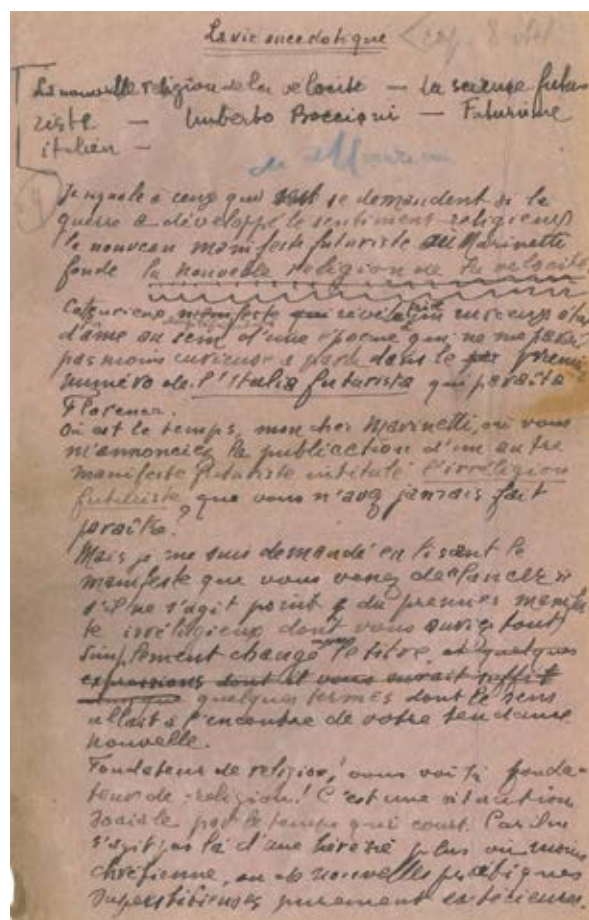 La vie anecdotique
La nouvelle religion de la velocité — La science futu
riste — Umberto Boccioni — Futurisme
italien —
Je signale à ceux qui se demandent si la
guerre a développé le sentiment religieux
le nouveau manifeste futuriste Marinetti
fonde la nouvelle religion de la velocité.
Ce curieux manifeste qui curieux état
d'âme au sein d'une époque qui ne me paraît
pas moins curieuse a paru dans le premier
numéro de l'Italia futurista qui paraît à
Florence.
Où est le temps, mon cher Marinetti, où vous
m'annonciez la publication d'un autre
manifeste futuriste intitulé l'irréligion
futuriste que vous n'avez jamais fait
paraître?
Mais je me suis demandé en lisant le
manifeste que vous venez de "lancer"
s'il ne s'agit point du premier manifes
te irréligieux dont vous auriez tout
simplement changé le titre et quelques
expressions dont il vous aurait suffit
quelques termes dont le sens
allait à l'encontre de votre tendance
nouvelle.
Fondateur de religion! vous voilà fonda-
teur de religion! C'est une situation
sociale par le temps qui court. Car il ne
s'agit pas là d'une hérésie plus ou moins
chrétienne, ou de nouvelles pratiques
superstitieuses purement extérieures.